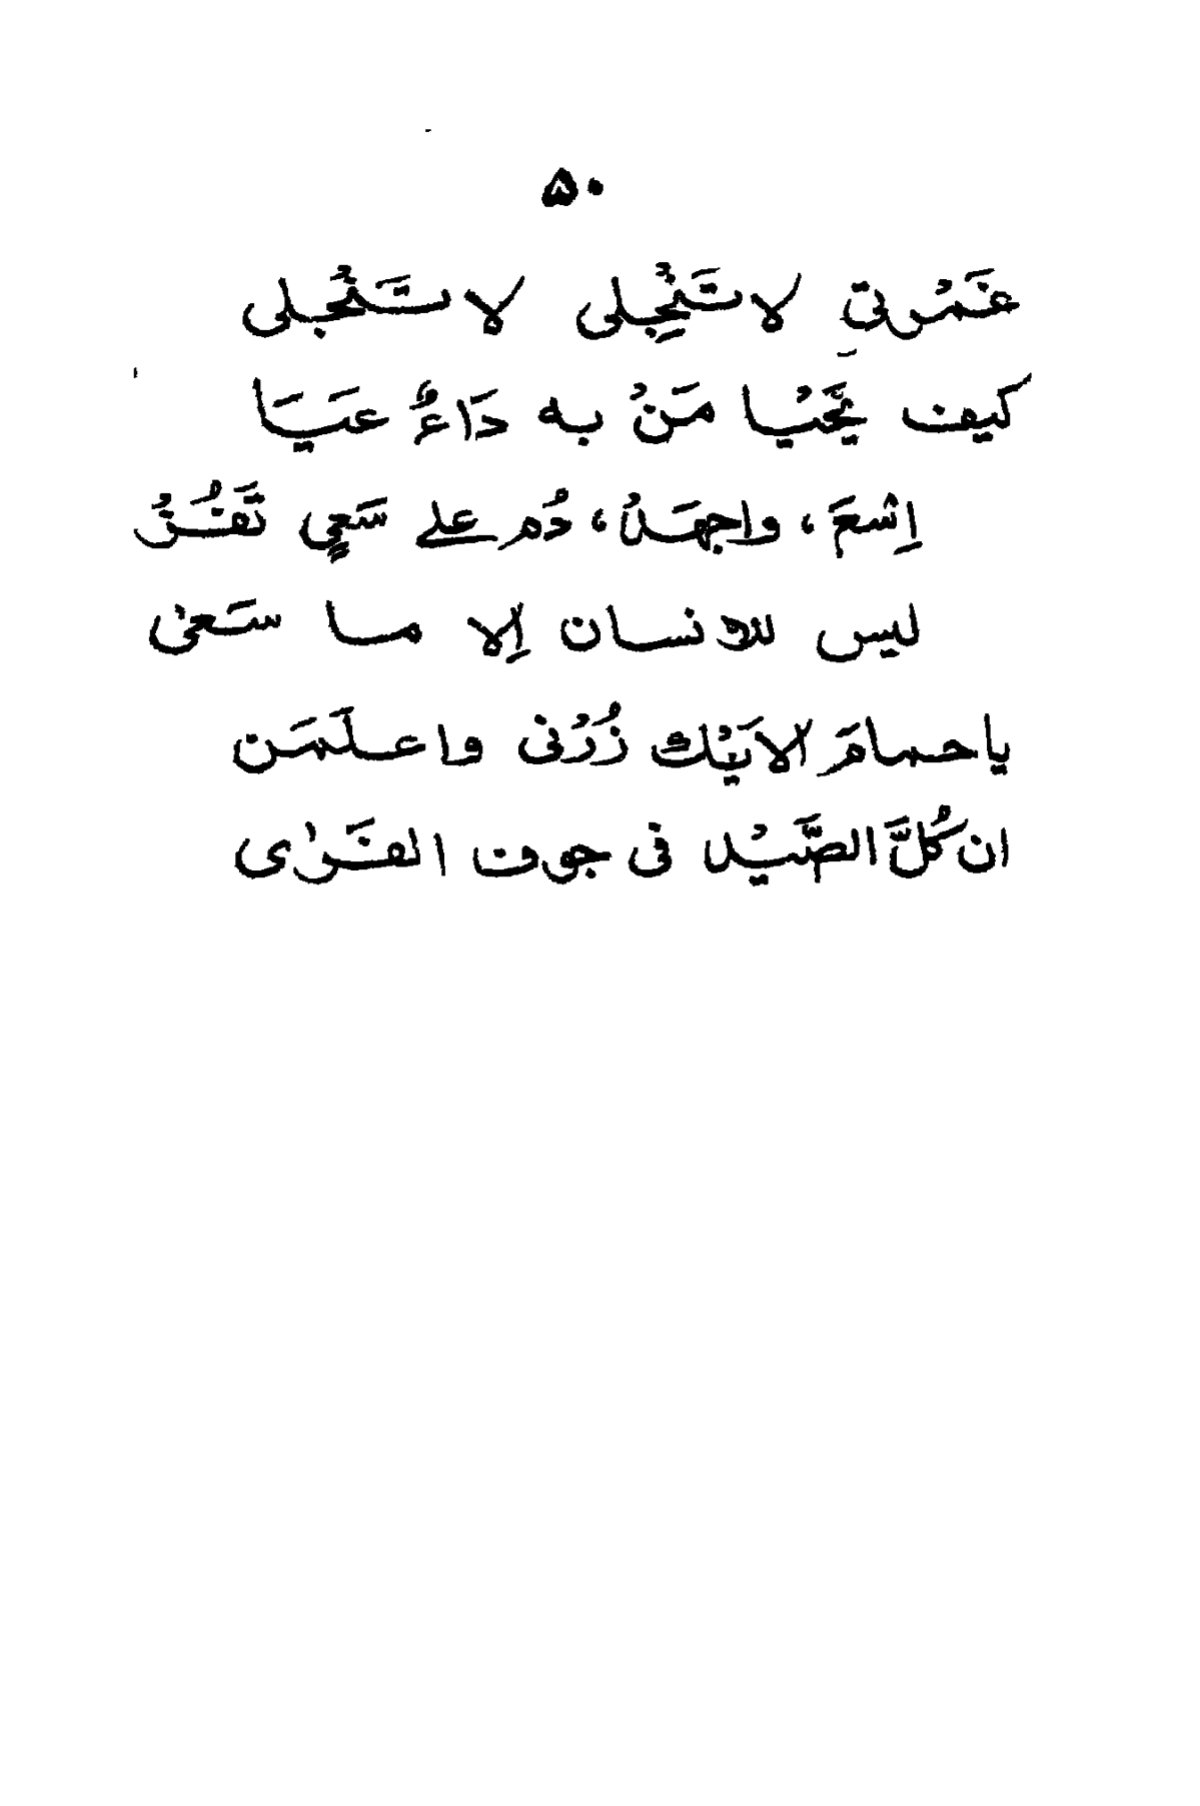 ۵۰
غَمْرتِی لا تَنْجِلی لا تَنْجلی
کیف یَحْیا مَنْ به دَاءٌ عَیَا
اِسْعَ ، واجهَدْ ، دُم علے سَعيٍ تَفُزْ
لیس للانسان اِلا ما سَعیٰ
یا حمامَ الایْك زُرْنی واعلَمَن
ان كُلَّ الصَّیْد فی جوف الفَرٰی